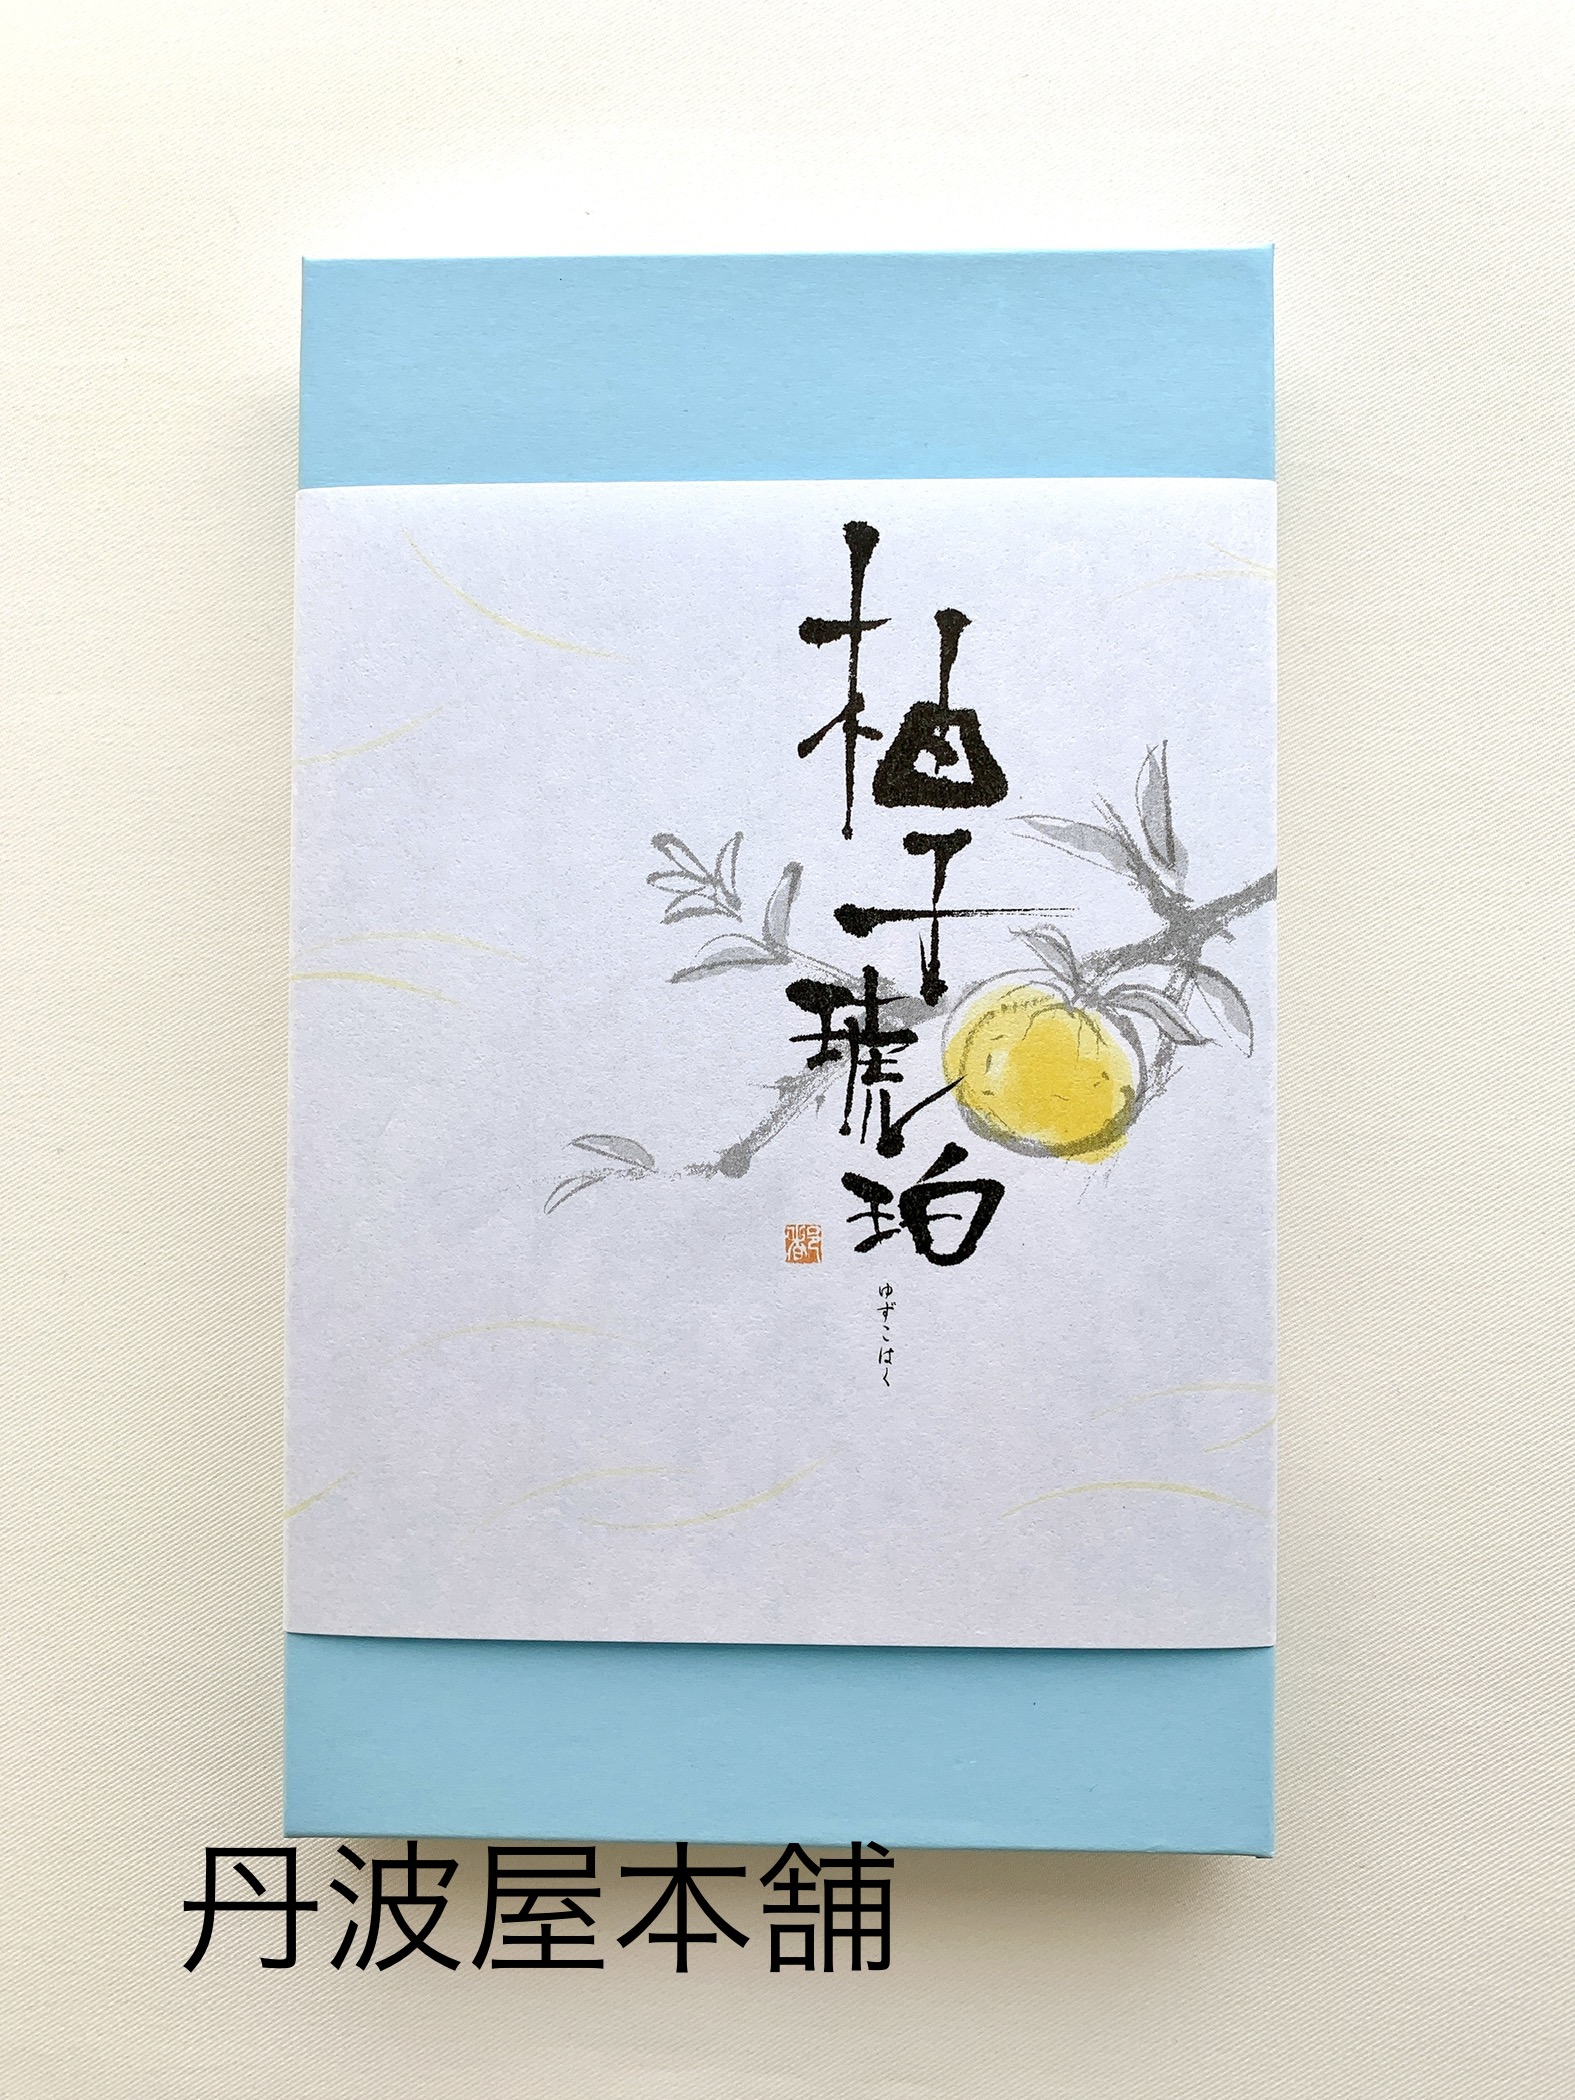 柚子琥珀
ゆずこはく
丹波屋本舗